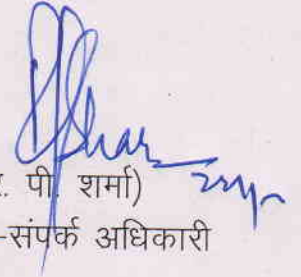 . पी. शर्मा)
-संपर्क अधिकारी